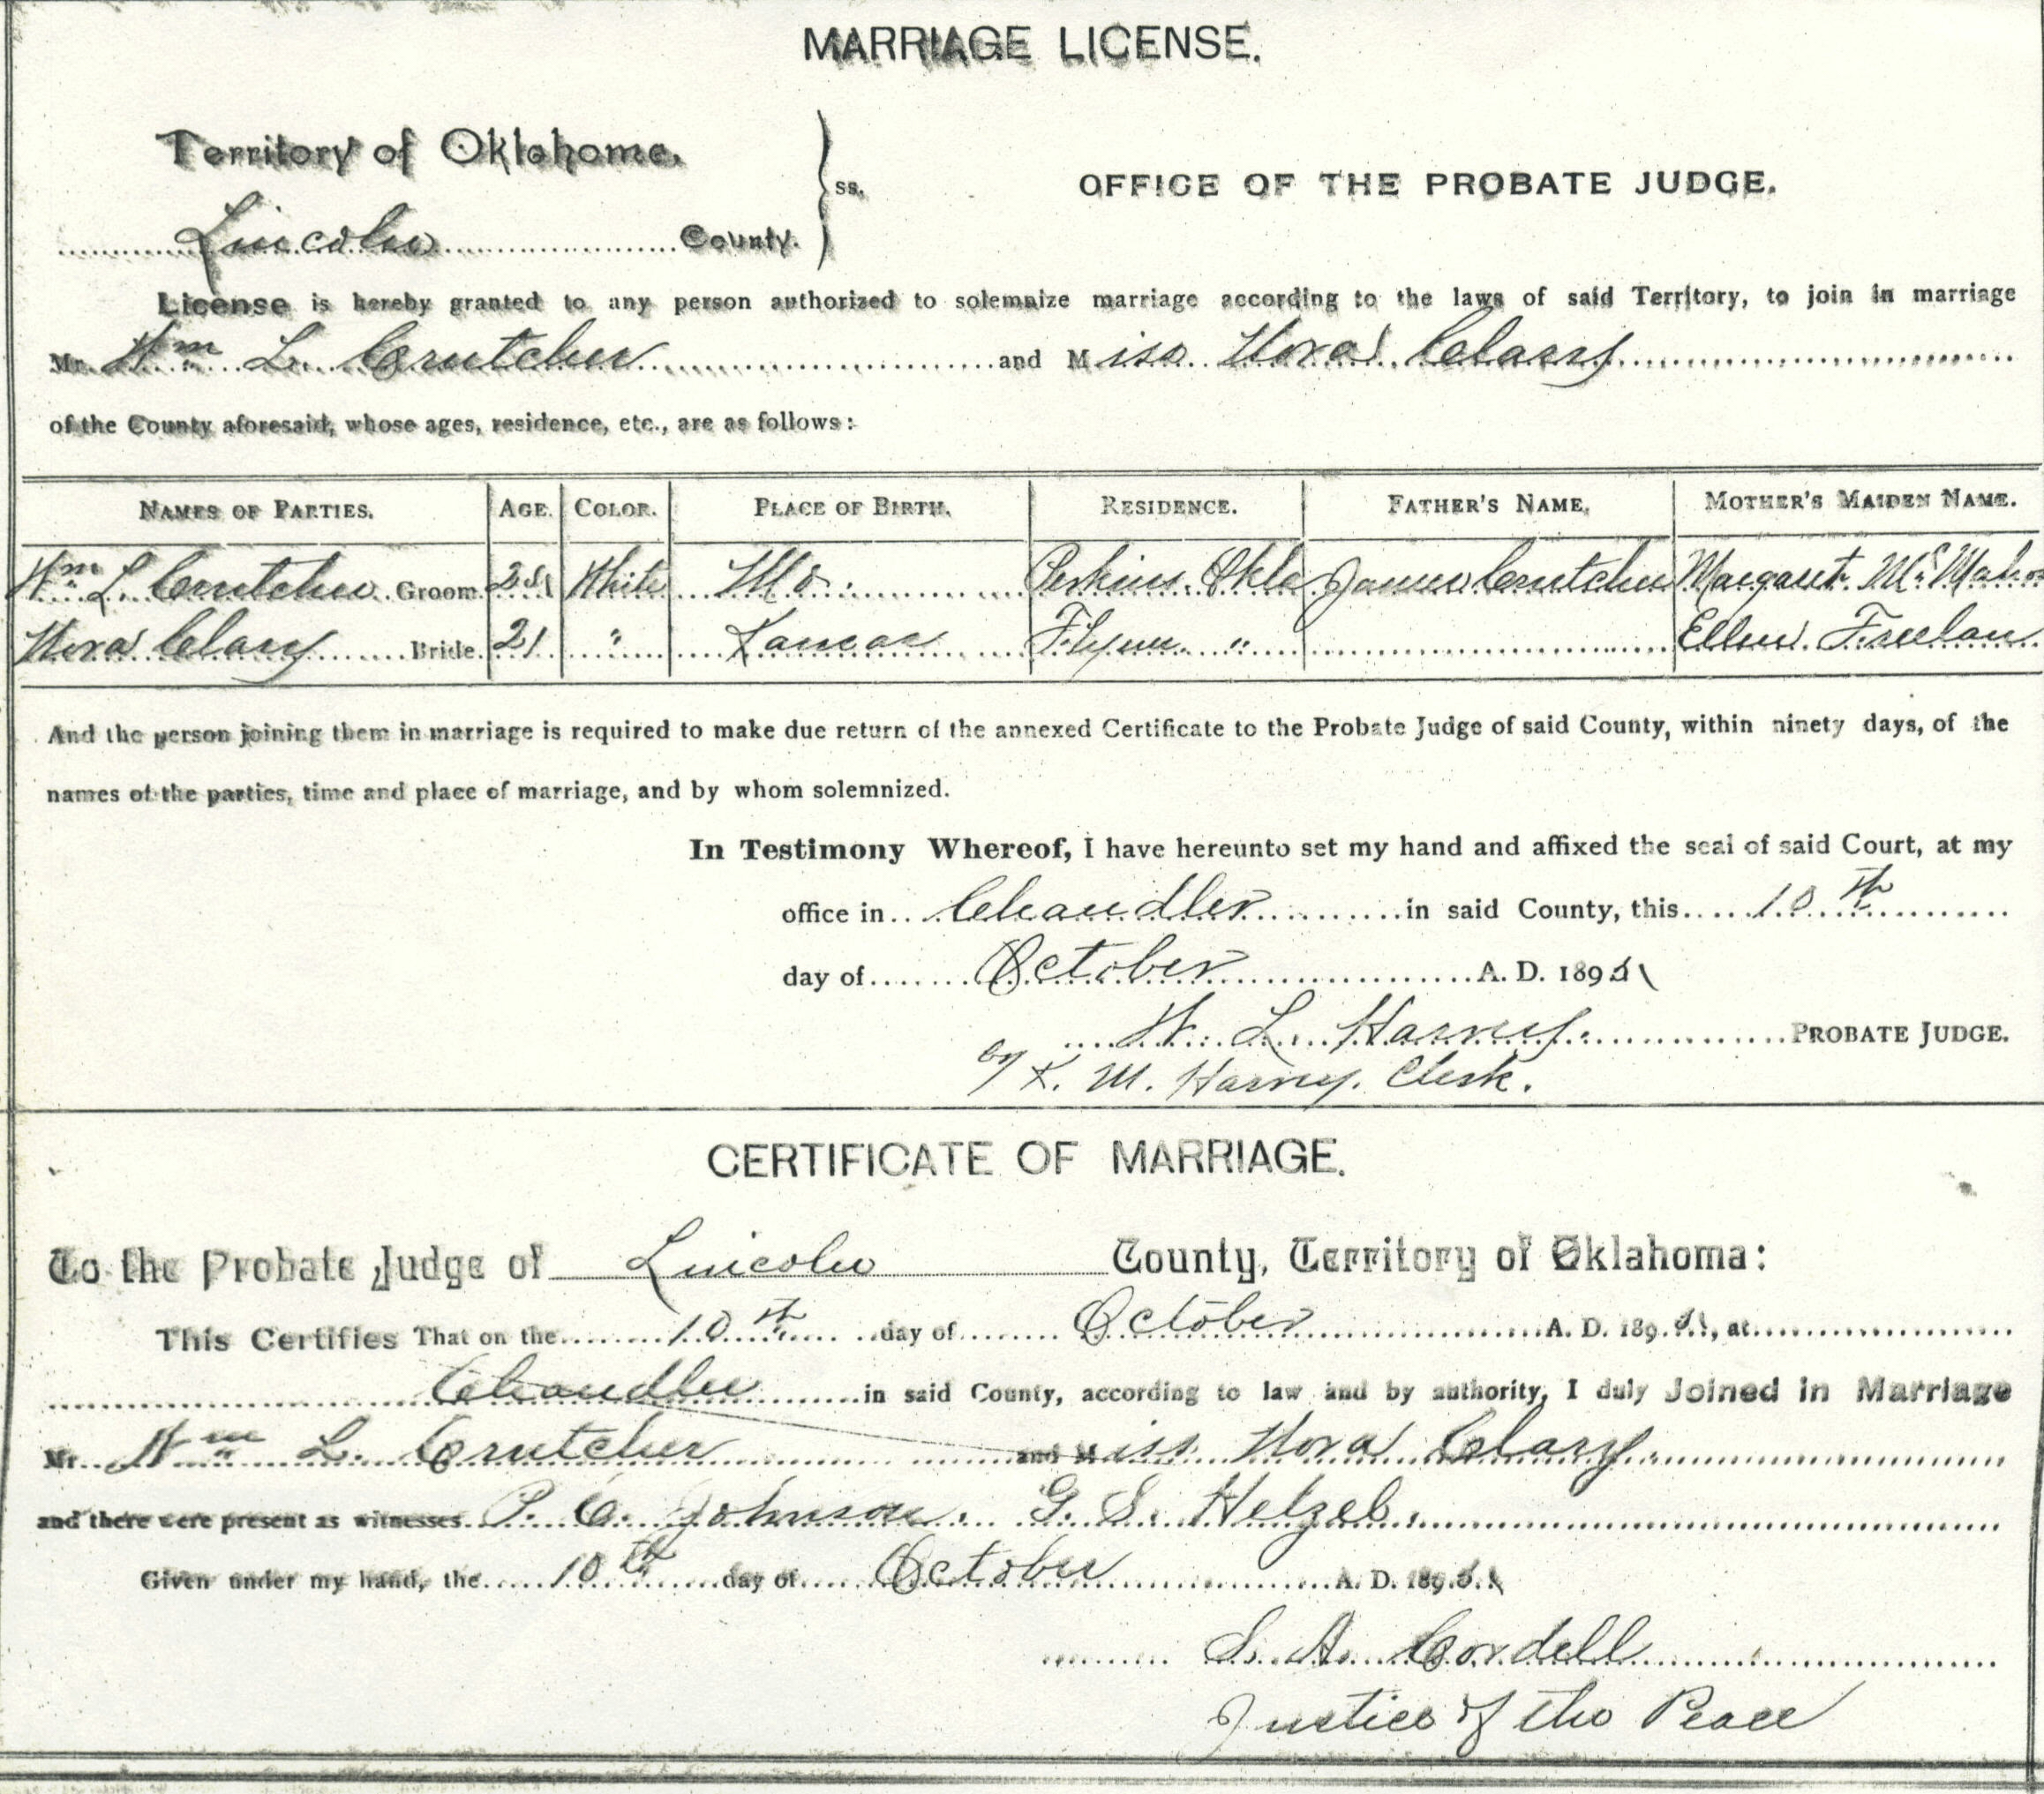 MARRIAGE LICENSE.
Territory of Oklahoma. ss. OFFICE OF THE PROBATE JUDGE.
Lincoln County.
License is hereby granted to any person authorized to solemnize marriage according to the laws of said Territory, to join in marriage
Mr. Wm L. Crutcher and Miss Nora Clary
of the County aforesaid, whose ages, residence, etc., are as follows:
NAMES OF PARTIES. AGE. COLOR. PLACE OF BIRTH. RESIDENCE. FATHER'S NAME. MOTHER'S MAIDEN NAME.
Wm L Crutcher Groom. White Mo. Perkins Okla James Crutcher Margaret
Nora Clary Bride. 21 " Kansas " Ellen Freelan
And the person joining them in marriage is required to make due return of the annexed Certificate to the Probate Judge of said County, within ninety days, of the
names of the parties, time and place of marriage, and by whom solemnized.
In Testimony Whereof, I have hereunto set my hand and affixed the seal of said Court, at my
office in Chandler in said County, this 10th
day of October A. D. 189
W. L. Harvey PROBATE JUDGE.
by K. M. Harvey. Clerk.
CERTIFICATE OF MARRIAGE.
To the Probate Judge of Lincoln County, Territory of Oklahoma:
This Certifies That on the 10th day of October A. D. 189 , at
Chandler in said County, according to law and by authority, I duly Joined in Marriage
Mr. Wm L. Crutcher and Miss Nora Clary
and there were present as witnesses P. C. Johnson. G. S. Helzel.
Given under my hand, the 10th day of October A. D. 189
S. A. Cordell
Justice of the Peace